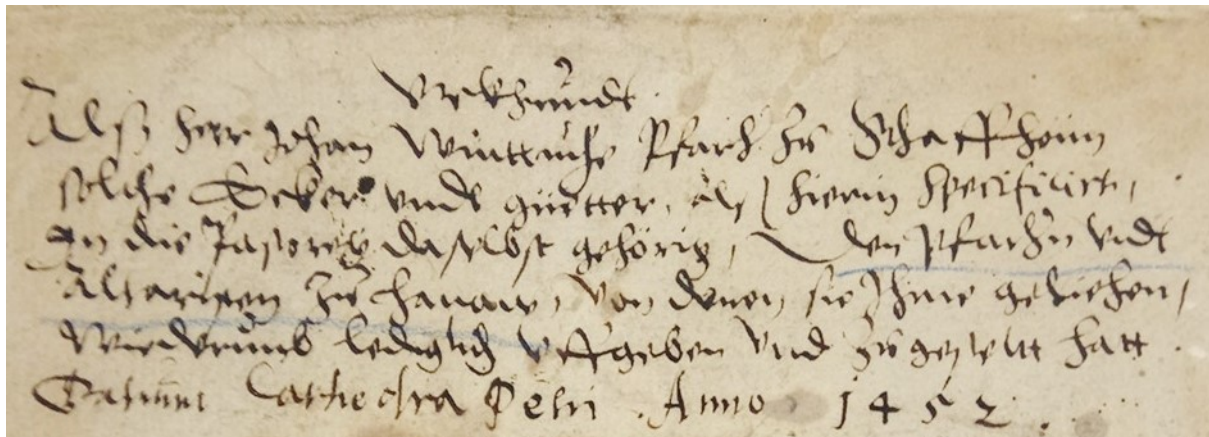 Urkhundt
Alß herr Johan Winttuße Pfarh zu Schaffheim
solche Ecker unndt güetter, alß hierin specificirt,
an die Pastorey daselbst gehörig, den Pfarhn undt
Altaristen zu Hanaw, von denen sie Ihme geliehen,
Wiederumb lediglich uffgeben und zugestelt hatt.
Datum Cathedra Petri Anno 1452.